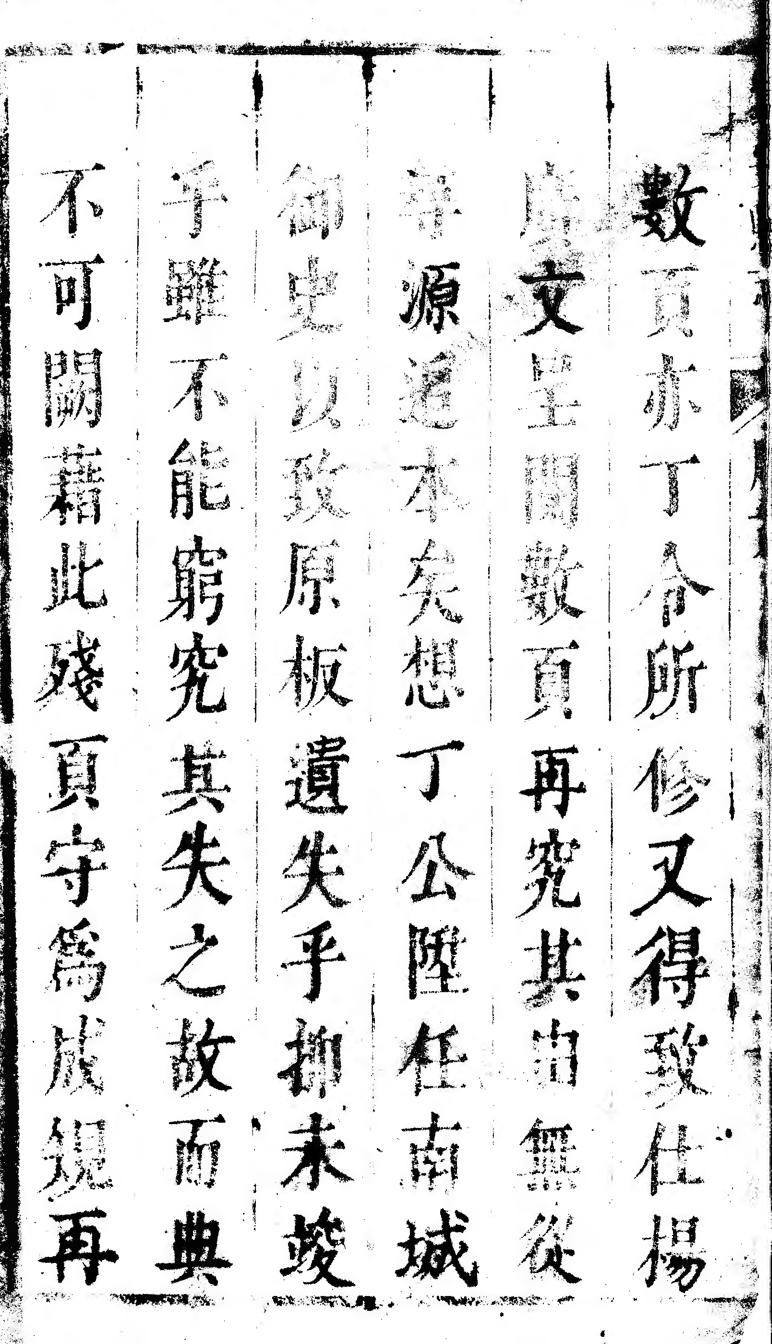 數頁亦丁令所修又得致仕楊
廣文呈閱數頁再究其由無從
尋源追本矣想丁公陞任南城
御史以致原板遺失乎抑未竣
乎雖不能窮究其失之故而典
不可闕藉此殘頁守爲成規再